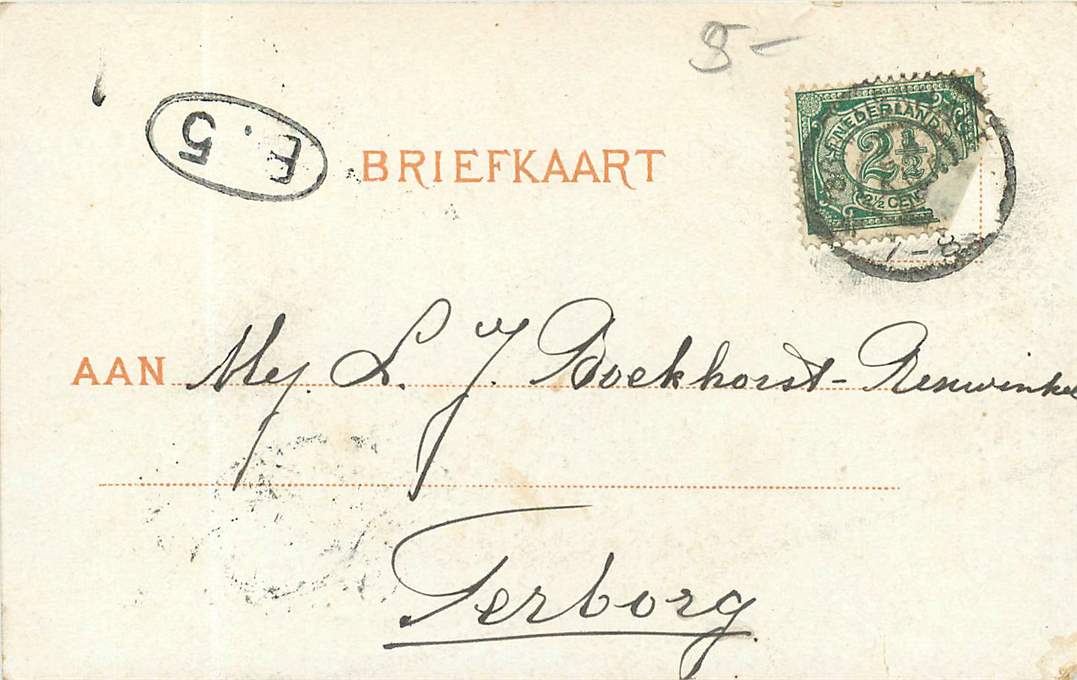 5-
E. 5
BRIEFKAART
NEDERLAND
2½
2½ CEN
7-8
AAN Mej. L. J. Boekhorst-Renwinkel
Terborg.